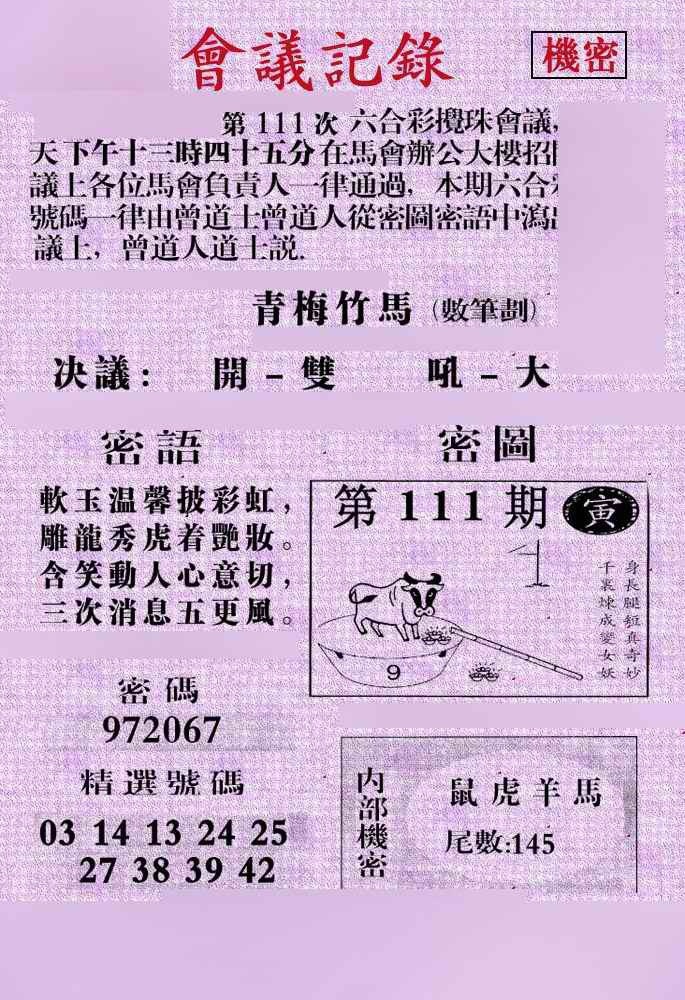 會議記錄
機密
第 111 次 六合彩攪珠會議,
天下午十三時四十五分在馬會辦公大樓招
議上各位馬會負責人一律通過, 本期六合
號碼一律由曾道士曾道人從密圖密語中瀉
議上, 曾道人道士説.
青梅竹馬 (數筆劃)
决議: 開-雙 吼-大
密語
軟玉温馨披彩虹,
雕龍秀虎着艷妝。
含笑動人心意切,
三次消息五更風。
密圖
第 111 期 寅
身長腿短真奇妙
千裏煉成變女妖
9
密碼
972067
精選號碼
03 14 13 24 25
27 38 39 42
内部機密
鼠虎羊馬
尾數:145